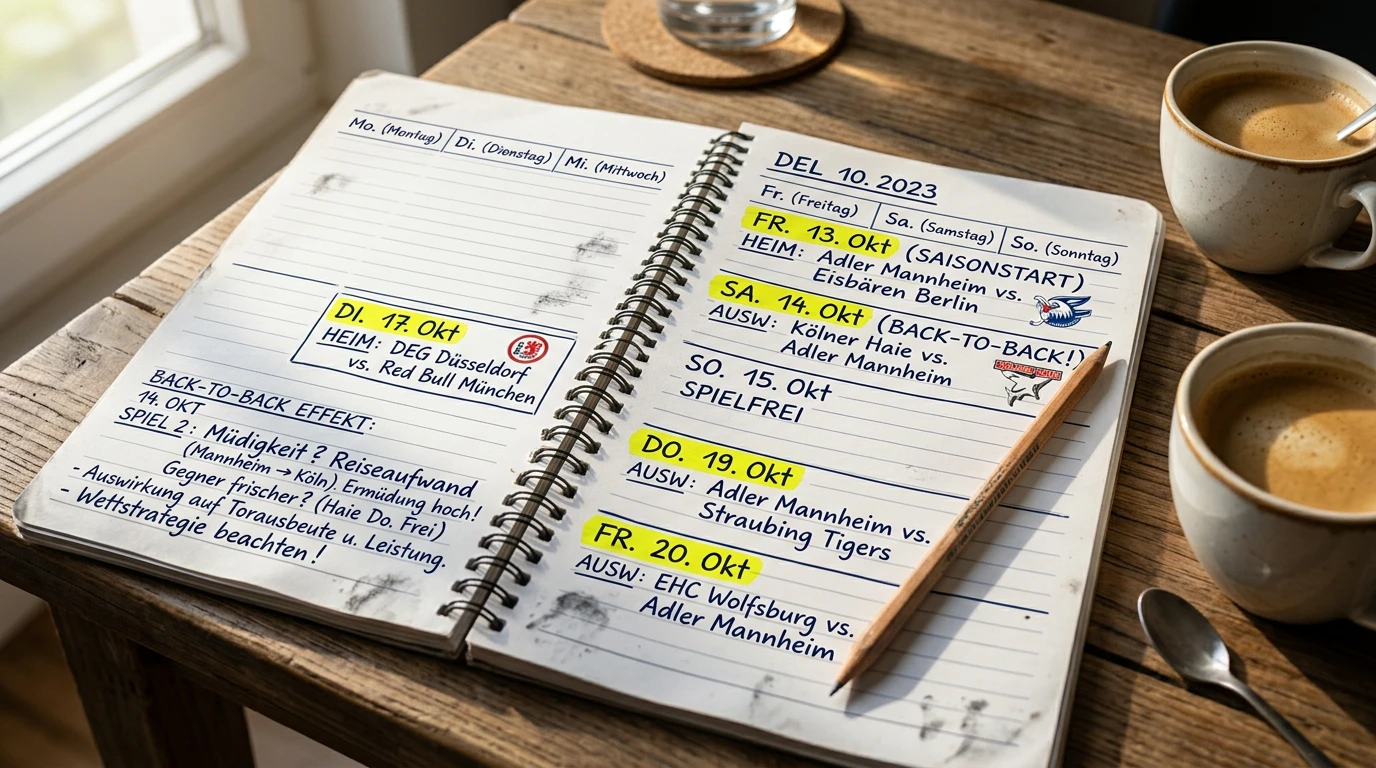 Mo. (Montag) Di. (Dienstag) Mi. (Mittwoch)
DI. 17. Okt
HEIM: DEG Düsseldorf
vs. Red Bull München
BACK-TO-BACK EFFEKT:
14. OKT
SPIEL 2: Müdigkeit? Reiseaufwand
(Mannheim → Köln). Ermüdung hoch!
Gegner frischer? (Haie Do. Frei)
- Auswirkung auf Torausbeute u. Leistung.
- Wettstrategie beachten!
DEL 10. 2023
Fr. (Freitag) Sa. (Samstag) So. (Sonntag)
FR. 13. Okt (SAISONSTART)
HEIM: Adler Mannheim vs.
Eisbären Berlin
SA. 14. Okt (BACK-TO-BACK!)
AUSW: Kölner Haie vs.
Adler Mannheim
SO. 15. Okt
SPIELFREI
DO. 19. Okt
AUSW: Adler Mannheim vs.
Straubing Tigers
FR. 20. Okt
AUSW: EHC Wolfsburg vs.
Adler Mannheim